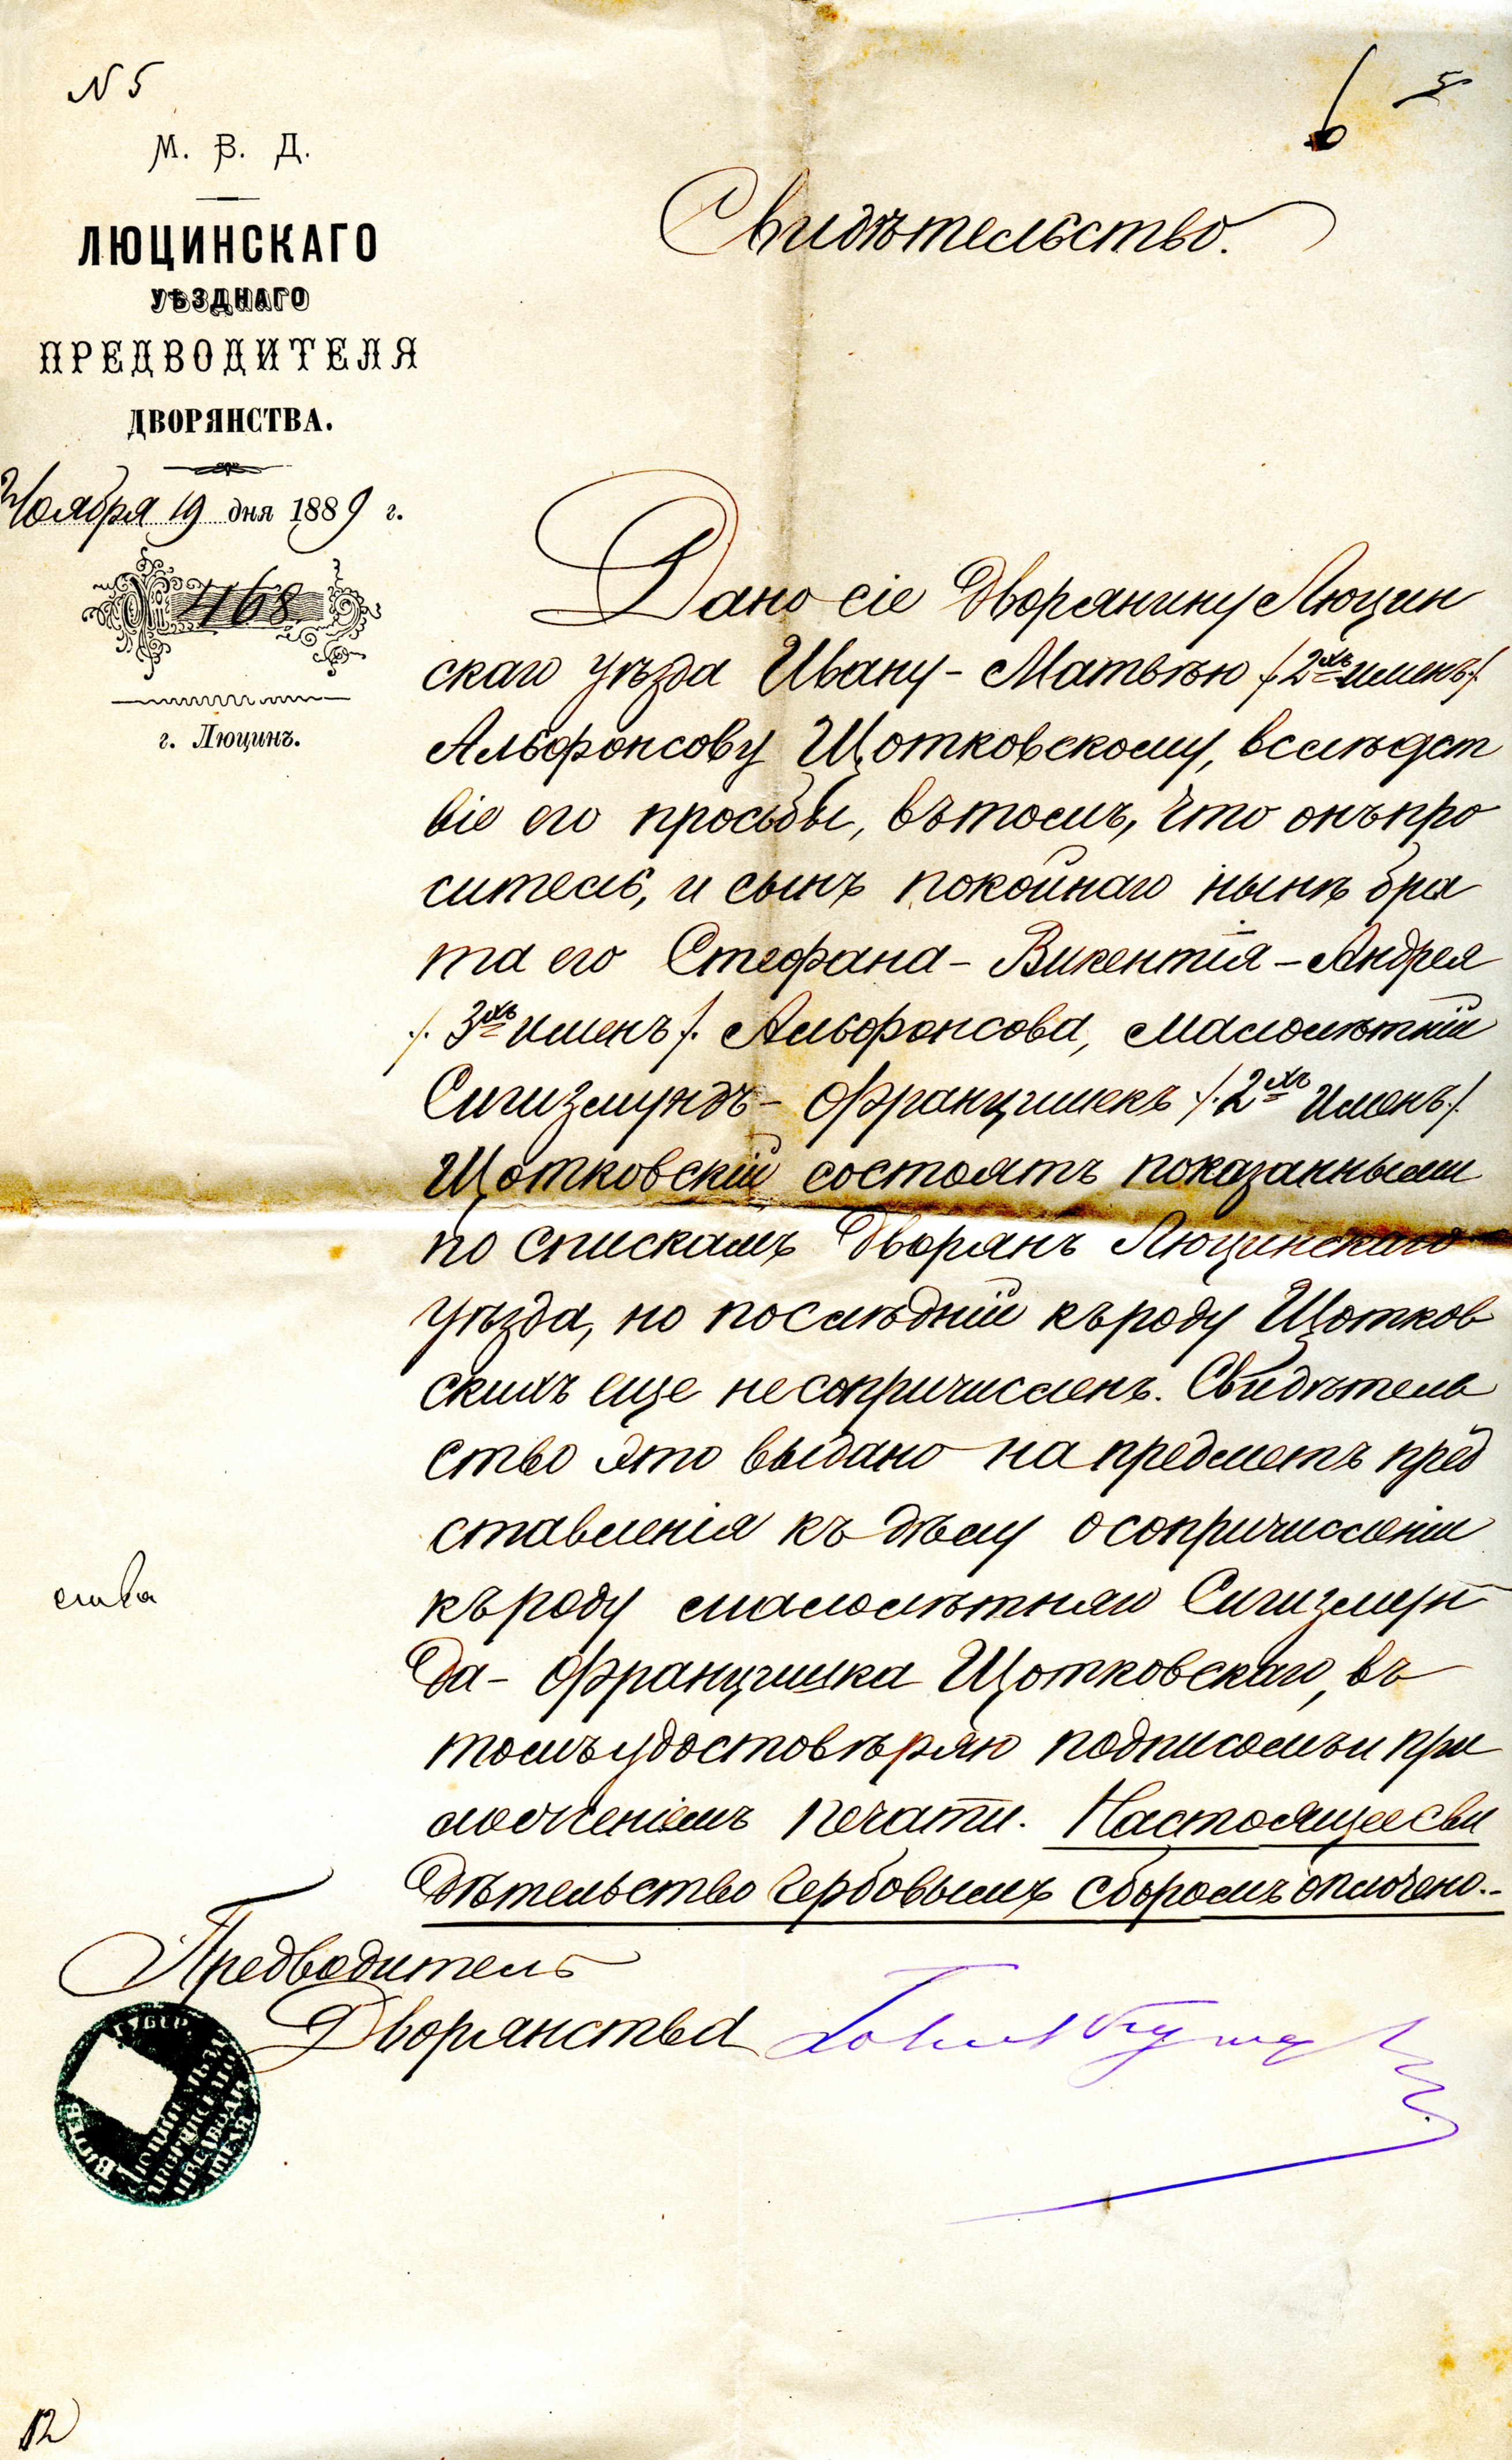 N 5
6 5
М. В. Д.
ЛЮЦИНСКАГО
УѢЗДНАГО
ПРЕДВОДИТЕЛЯ
ДВОРЯНСТВА.
Ноября 19 дня 1889 г.
№ 468
г. Люцинъ.
Свидѣтельство.
Дано сіе Дворянину Люцин
скаго уѣзда Ивану - Матвѣю /2хъ именъ/
Альфонсову Щотковскому, вслѣдст
віе его просьбы, въ томъ, что онъ про
ситель, и сынъ покойнаго нынѣ бра
та его Стефана - Викентія - Андрея
/. 3хъ именъ/. Альфонсова, малолѣтній
Сигизмундъ - Францишекъ /. 2хъ именъ/.
Щотковскій состоятъ показанными
по спискамъ Дворянъ Люцинскаго
уѣзда, но послѣдній къ роду Щотков
скихъ еще не сопричисленъ. Свидѣтель
ство это выдано на предметъ пред
ставленія къ дѣлу о сопричисленіи
къ роду малолѣтняго Сигизмун
да - Францишка Щотковскаго, въ
томъ удостовѣряю подписомъ и при
ложеніемъ печати. Настоящее сви
дѣтельство гербовымъ сборомъ оплочено.-
Предводитель
Дворянства
12